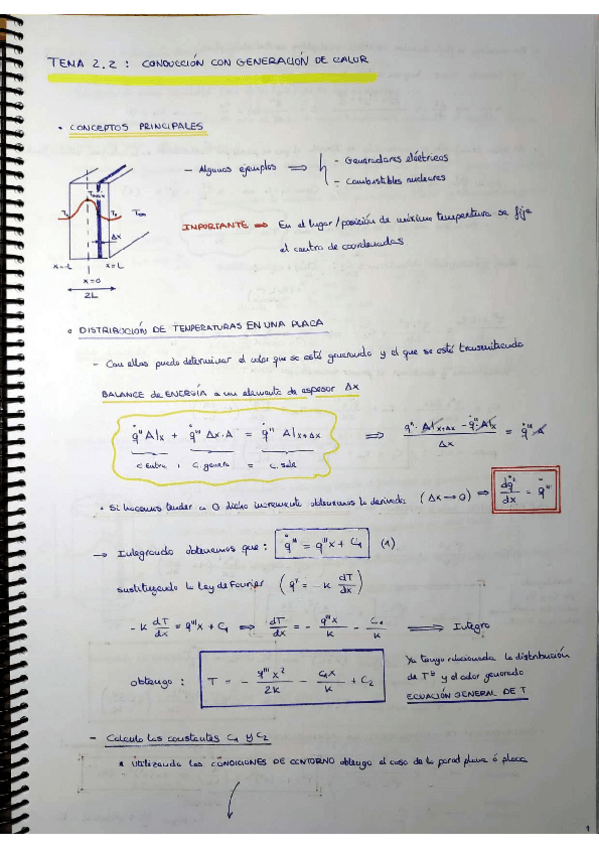 TEMA 2.2 : CONDUCCIÓN CON GENERACIÓN DE CALOR
• CONCEPTOS PRINCIPALES
- Algunos ejemplos ⟹ { - Generadores eléctricos
- Combustibles nucleares
IMPORTANTE ⟹ En el lugar/posición de máxima temperatura se fija
el centro de coordenadas
Tmáx
Ts Ts T∞
Δx
x=-L x=L
x=0
2L
• DISTRIBUCIÓN DE TEMPERATURAS EN UNA PLACA
- Con ellas puedo determinar el calor que se está generando y el que se está transmitiendo
BALANCE de ENERGÍA a un elemento de espesor Δx
q̇" A|x + q̇''' Δx·A = q̇" A|x+Δx ⟹ (q̇" A|x+Δx - q̇" A|x) / Δx = q̇''' A
C. entra + C. genera = C. sale
• Si hacemos tender a 0 dicho incremento obtenemos la derivada (Δx → 0) ⟹ dq̇"/dx = q̇'''
→ Integrando obtenemos que : q̇" = q'''x + C1 (1)
sustituyendo la Ley de Fourier (q" = -k dT/dx)
-k dT/dx = q'''x + C1 ⟹ dT/dx = - q'''x/k - C1/k ⟹ Integro
obtengo : T = - q'''x²/2k - C1x/k + C2
Ya tengo relacionada la distribución
de Tª y el calor generado
ECUACIÓN GENERAL DE T
- Calculo las constantes C1 y C2
• Utilizando las CONDICIONES DE CONTORNO obtengo el caso de la pared plana ó placa
1